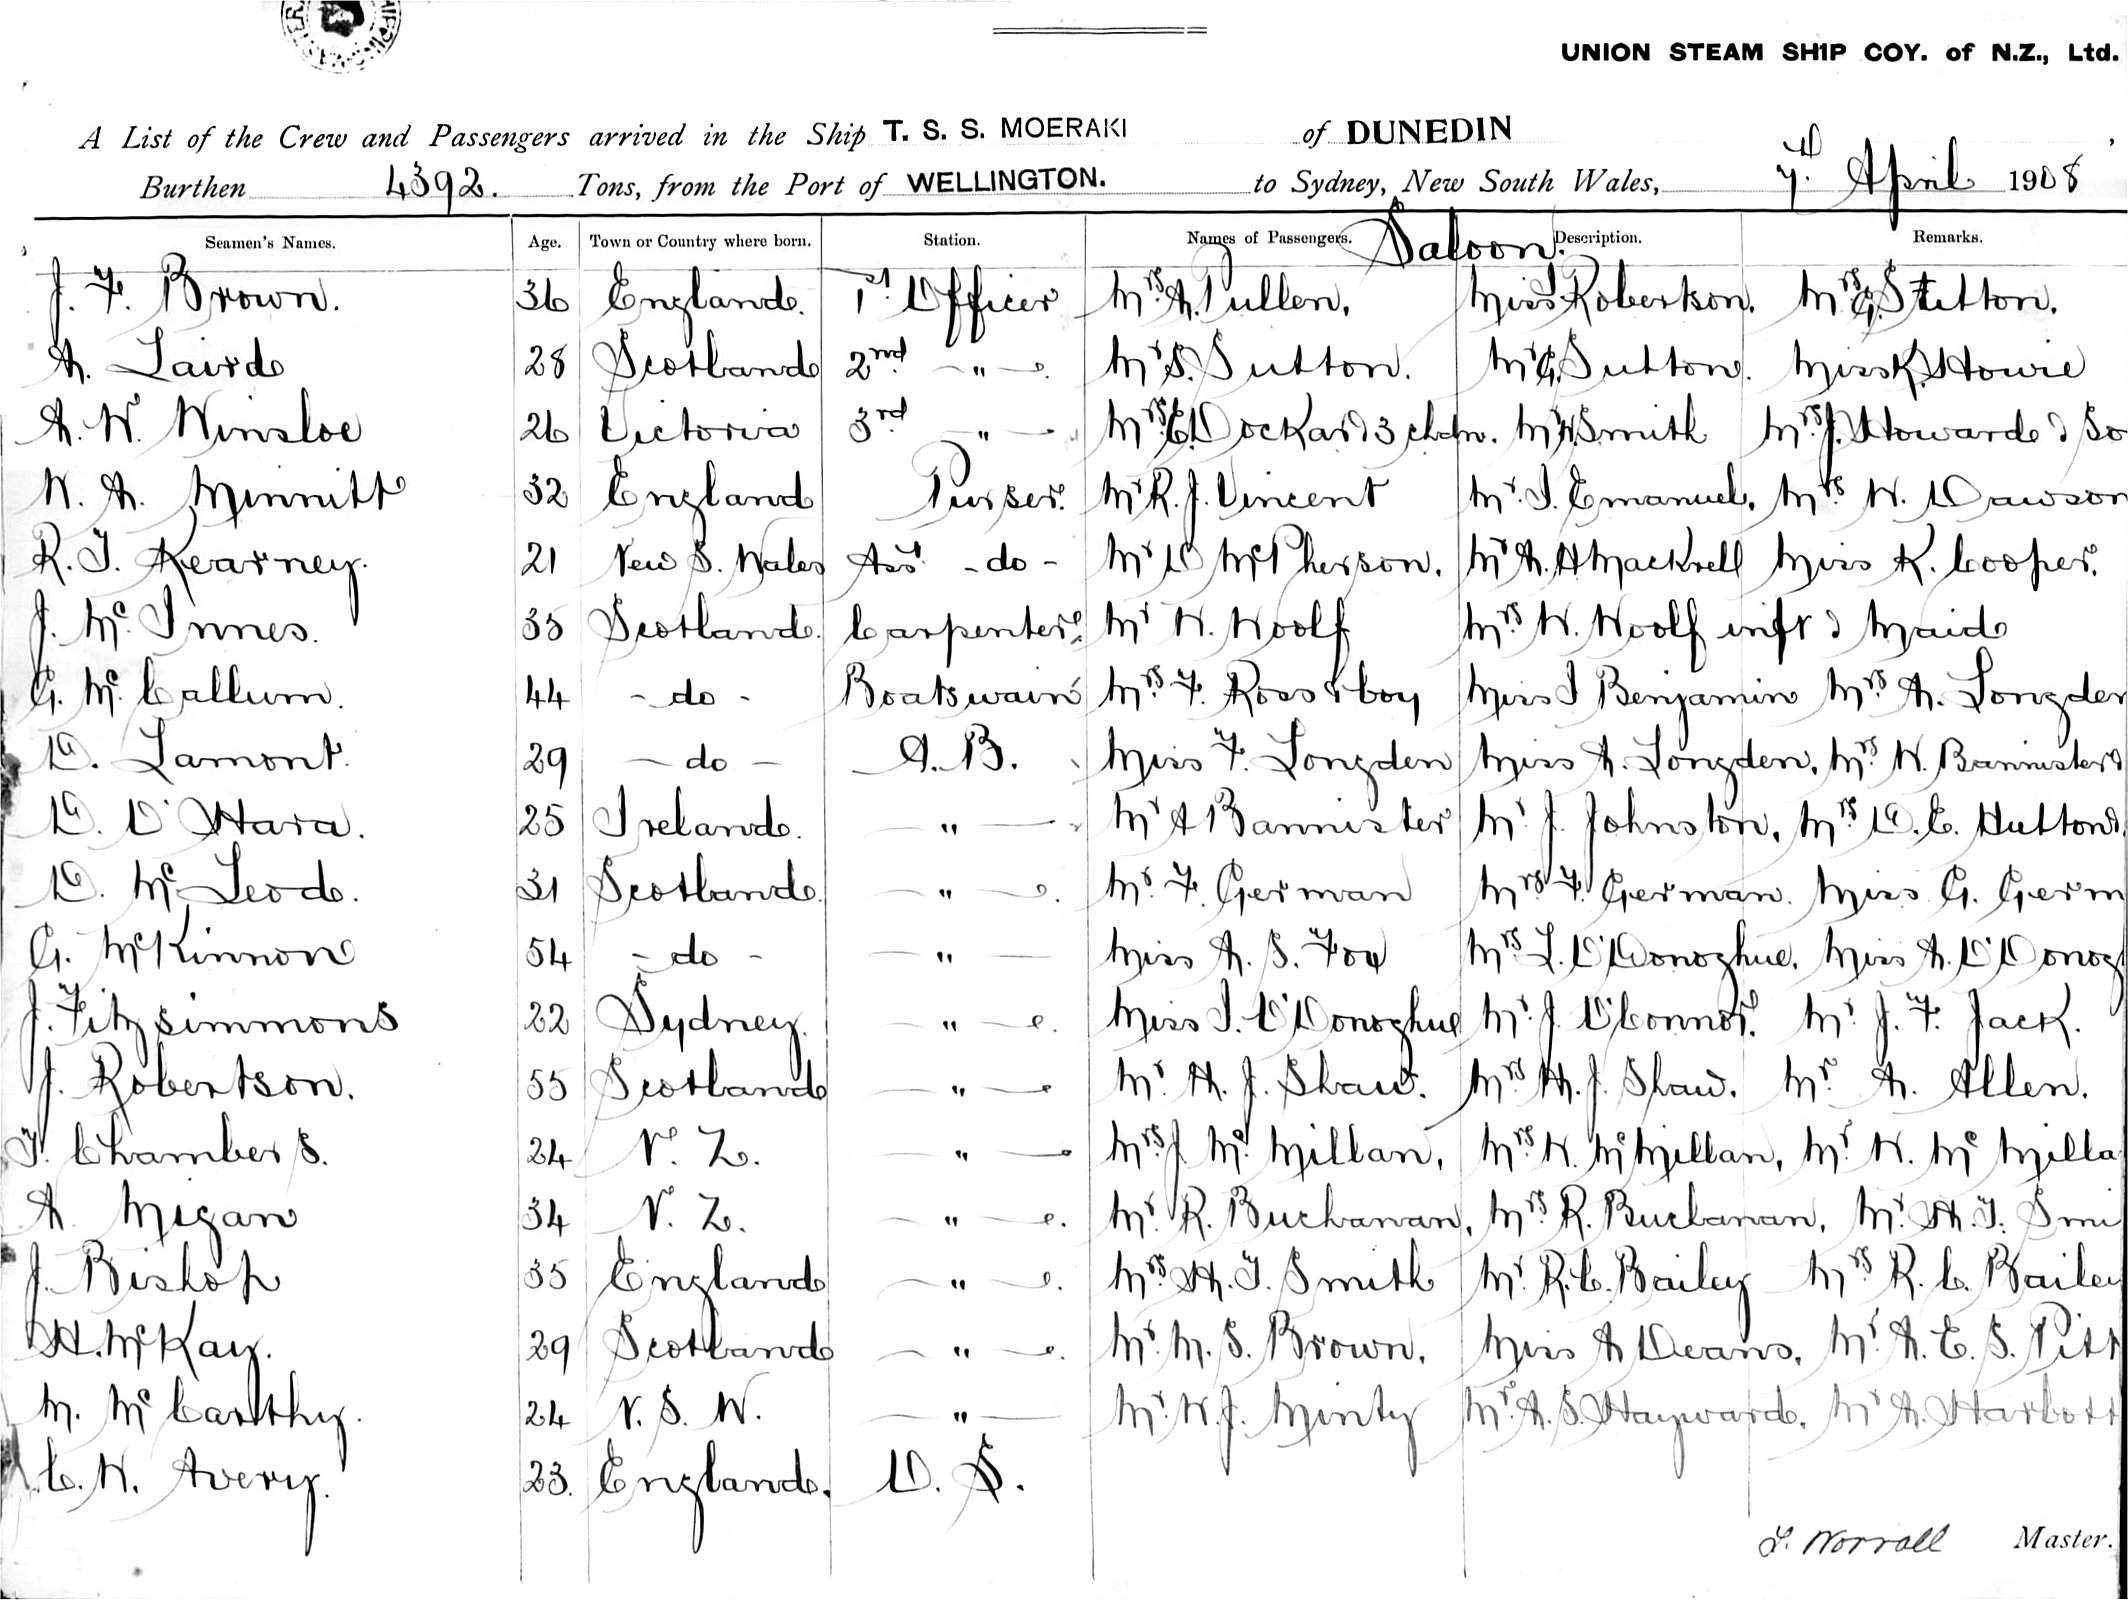 UNION STEAM SHIP COY. of N.Z., Ltd.
A List of the Crew and Passengers arrived in the Ship T. S. S. MOERAKI of DUNEDIN
Burthen 4392. Tons, from the Port of WELLINGTON. to Sydney, New South Wales, 7th April 1908
Seamen's Names. Age. Town or Country where born. Station. Names of Passengers. Saloon. Description. Remarks.
J. F. Brown. 36 England. 1st Officer Mrs A. Pullen. Miss Robertson. Mrs G. Sutton.
A. Laird 28 Scotland 2nd " Mr S. Sutton. Mr G. Sutton. Miss K. Howie
A. W. Winsloe 26 Victoria 3rd " Mrs E. Dockar & 3 chdn. Mr Smith Mrs J. Howard & So
W. A. Minnitt 32 England Purser. Mr R. J. Vincent Mr. I. Emanuel, Mrs W. Dawson
R. J. Kearney. 21 New S. Wales Asst - do - Mr D McPherson. Mr A. H Mackrell Miss K. Cooper.
J. Mc Innes. 35 Scotland. Carpenter Mr W. Woolf Mrs W. Woolf inft & Maid
G. Mc Callum. 44 - do - Boatswain Mrs F. Ross & boy Miss I Benjamin Mrs A. Longden
D. Lamont. 29 - do - A. B. Miss F. Longden Miss A. Longden, Mrs W. Bannister &
D. O'Hara. 25 Ireland. " Mr A Bannister Mr J. Johnston, Mrs D. E. Hutton &
D. Mc Leod. 31 Scotland. " Mr. F. German Mrs F. German. Miss G. Germ
G. McKinnon 54 - do - " Miss A. S. Fox Mrs L. O'Donoghue. Miss A. O'Donog
J. Fitzsimmons 22 Sydney. " Miss I. O'Donoghue Mr. J. O'Connor. Mr J. F. Jack.
J. Robertson. 55 Scotland " Mr. H. J. Shaw. Mrs H. J. Shaw. Mr. A. Allen.
F. Chambers. 24 N. Z. " Mrs J Mc Millan, Mrs W. McMillan, Mr W. Mc Milla
A Migan 34 N. Z. " Mr. R. Buchanan, Mrs R. Buchanan, Mr. H. T. Smi
J. Bishop 35 England " Mrs H. T. Smith Mr. R. C. Bailey Mrs R. C. Bailey
H. McKay. 29 Scotland " Mr. M. S. Brown, Miss A Deans, Mr. A. E. S. Pitt
M. Mc Carthy. 24 N. S. W. " Mr. W. J. Minty Mr. A. S. Hayward. Mr A. Harbott
C. W. Avery. 23. England. O. S.
F. Worrall Master.